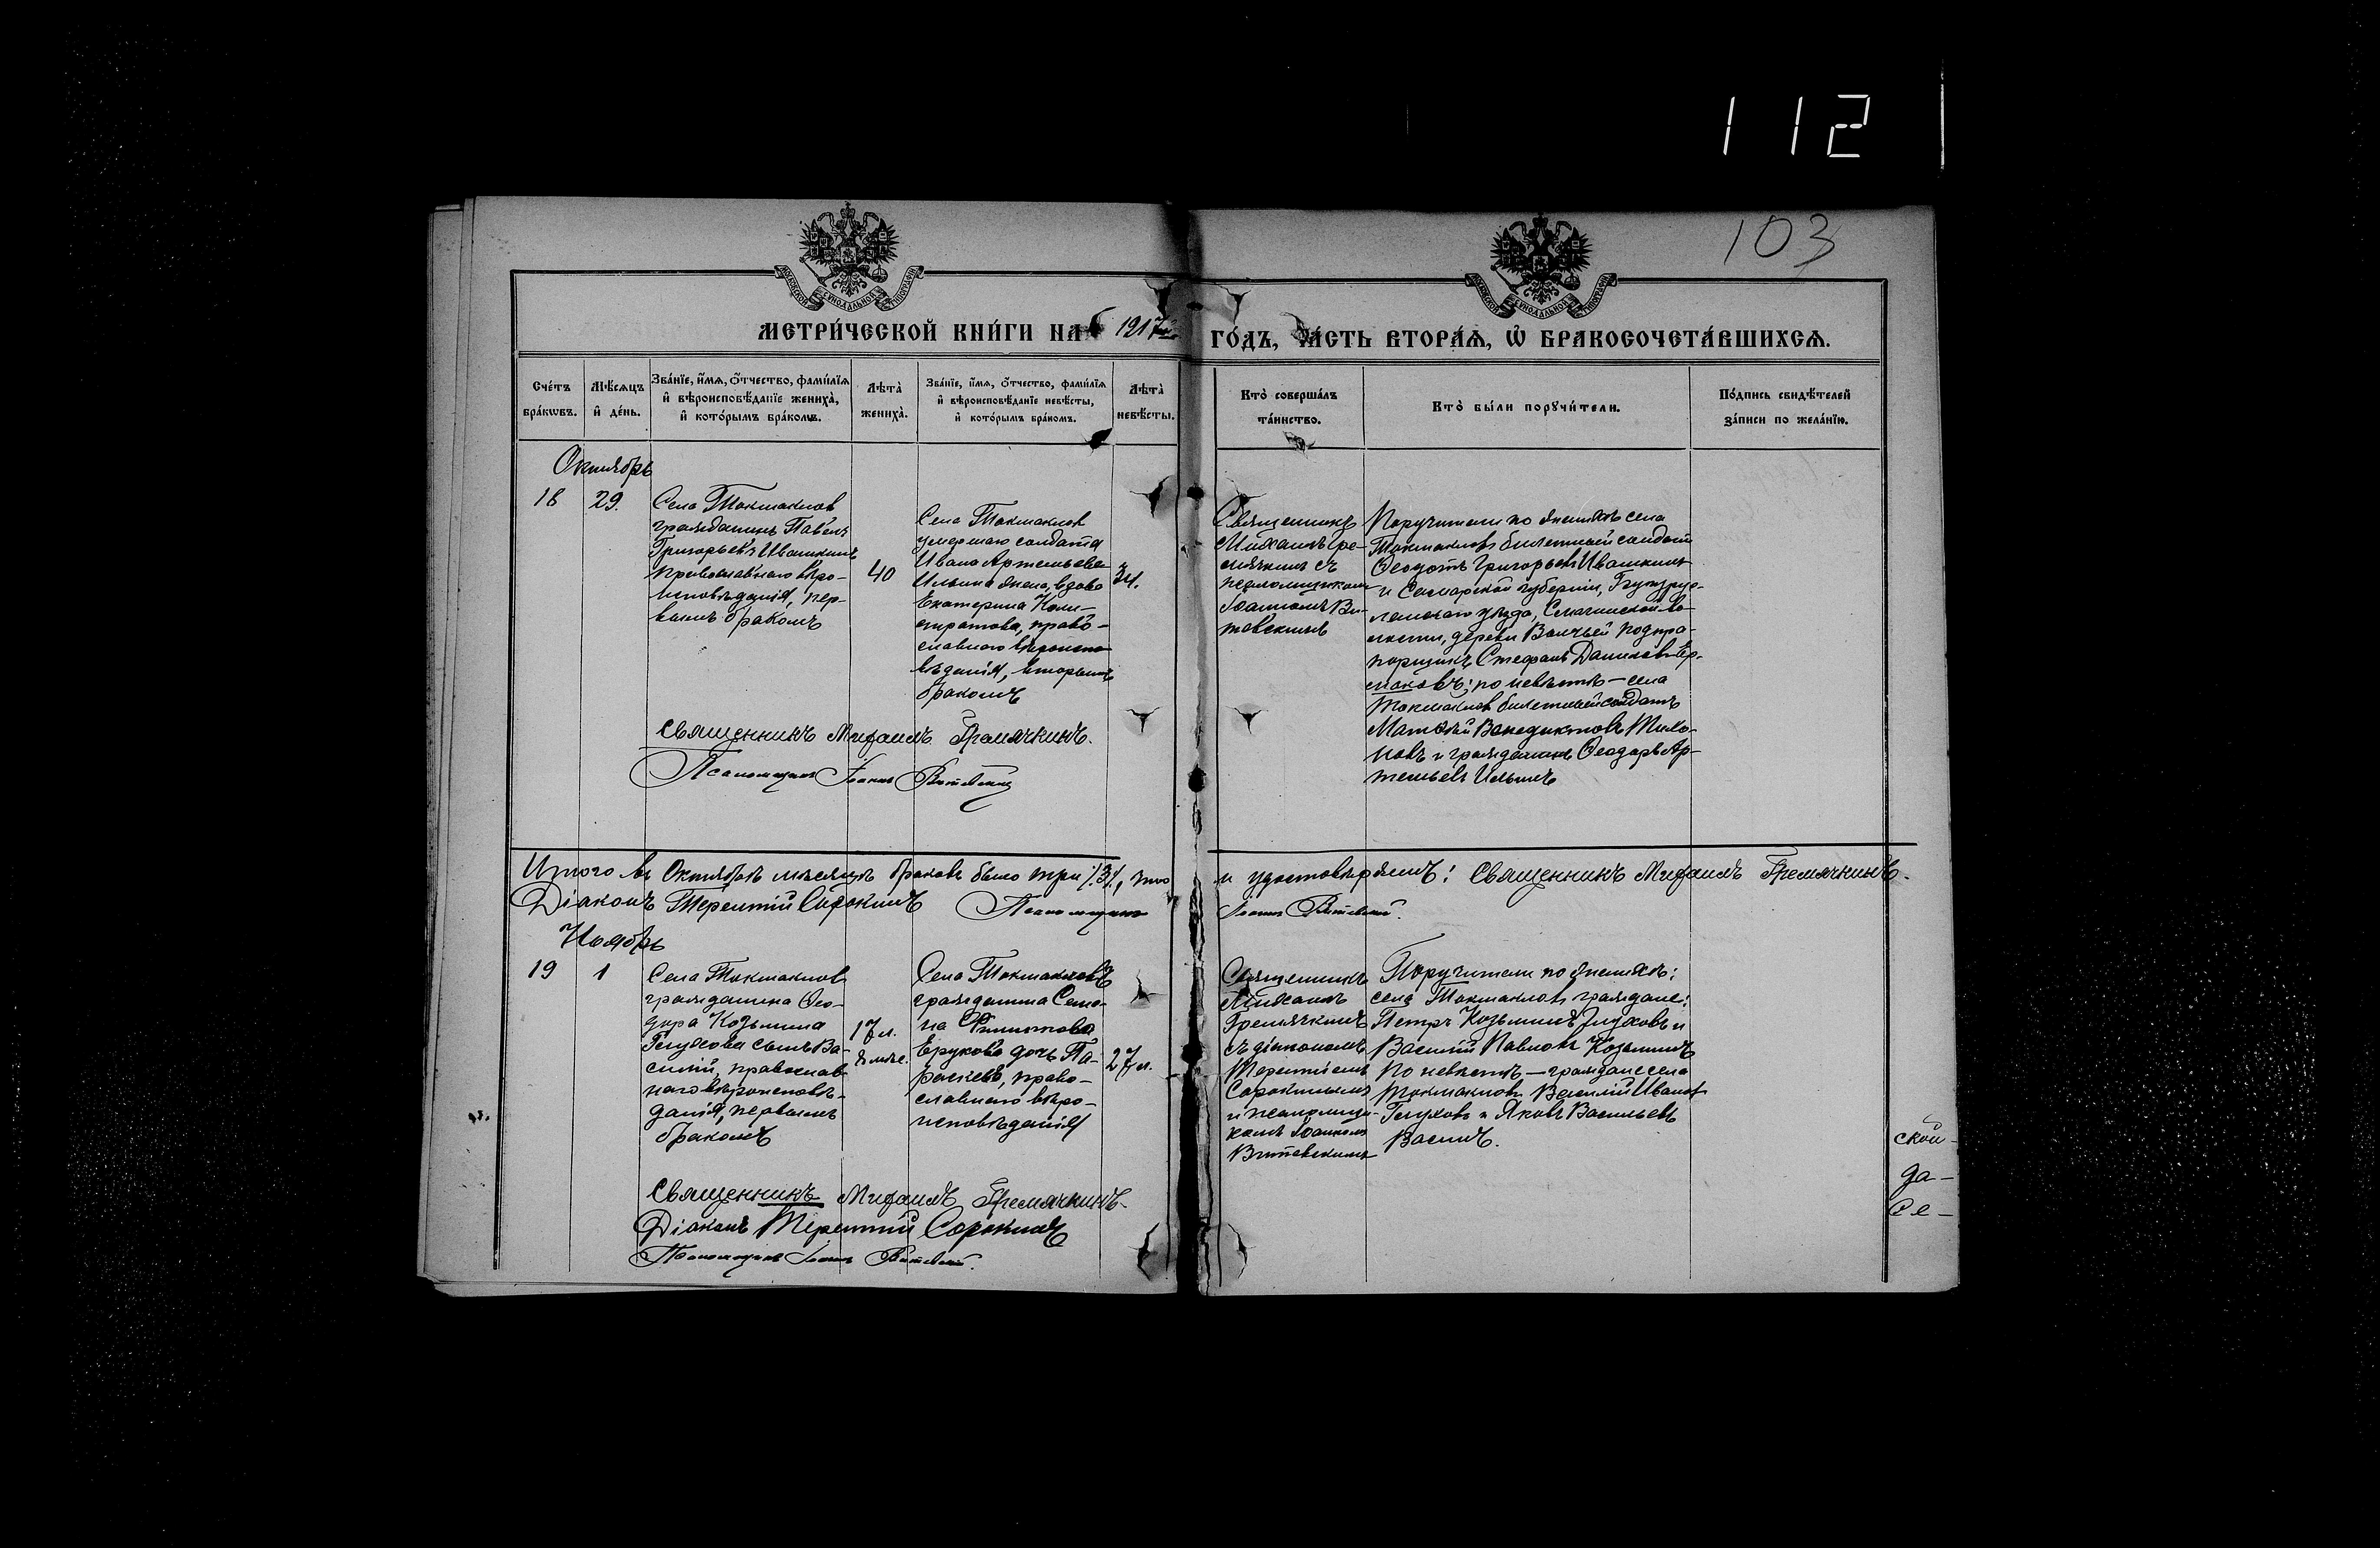 112
103
МОСКОВСКОЙ СѴНОДАЛЬНОЙ ТИПОГРАФІИ
МОСКОВСКОЙ СѴНОДАЛЬНОЙ ТИПОГРАФІИ
МЕТРИ́ЧЕСКОЙ КНИ́ГИ НА 1917й ГО́ДЪ, ЧА́СТЬ ВТОРА́Ѧ, Ѽ БРАКОСОЧЕТА́ВШИХСѦ.
Сче́тъ бра́кѡвъ.
Мѣ́сяцъ и҆ де́нь.
Зва́нїе, и҆́мѧ, ѻ҆́тчество, фами́лїѧ
и҆ вѣроисповѣ́данїе жениха̀,
и҆ кото́рымъ бра́комъ.
Лѣта̀ жениха̀.
Зва́нїе, и҆́мѧ, ѻ҆́тчество, фами́лїѧ
и҆ вѣроисповѣ́данїе невѣ́сты,
и҆ кото́рымъ бра́комъ.
Лѣта̀ невѣ́сты.
Кто̀ соверша́лъ та́инство.
Кто̀ бы́ли порꙋчи́тели.
По́дпись свидѣ́телей
за́писи по жела́нїю.
Октябрь
18
29.
Села Токмаклов
гражданинъ Павелъ
Григорьевъ Ивашкинъ
православнаго вѣро-
исповѣданія, пер-
вымъ бракомъ
40
Села Токмаклов
умершаго солдата
Ивана Артемьева
Ильина жена, вдова
Екатерина
право-
славнаго вѣроиспо
вѣданія, вторымъ
бракомъ
34.
Священникъ
Михаилъ Гре-
мячкинъ съ
псаломщикомъ
Іоанномъ Ви-
товскимъ
Поручители по женихѣ села
Токмаклов билетный солдатъ
Ѳеодотъ Григорьевъ Ивашкинъ
и Самарской губерніи, Бугуру-
ланскаго уѣзда, во-
лости, дерев. подпра-
порщикъ Стефанъ Даниловъ Ер-
маковъ; по невѣстѣ — села
Токмаклов билетный солдатъ
Матѳей Венедиктовъ Тихо-
новъ и гражданинъ Ѳеодоръ Ар-
темьевъ Ильинъ
Священникъ Михаилъ Гремячкинъ.
Псаломщикъ Іоаннъ Витовский
Итого въ Октябрѣ мѣсяцѣ браковъ было три /3/, что и удостовѣряемъ: Священникъ Михаилъ Гремячкинъ.
Діаконъ Терентій Сорокинъ Псаломщикъ Іоаннъ Витовский.
Ноябрь
19
1
Села Токмаклов
гражданина Ѳео-
дора Козьмина
Глухова сынъ Ва-
силій, православ
наго вѣроисповѣ-
данія, первымъ
бракомъ
17 л.
8 мѣс.
Села Токмакловъ
гражданина Семе-
на Филиппова
Ерукова дочь Па-
раскева, право-
славнаго вѣро-
исповѣданія
27 л.
Священникъ
Михаилъ
Гремячкинъ
съ діакономъ
Терентіемъ
Сорокинымъ
и псаломщи-
комъ Іоанномъ
Витовскимъ
Поручители по женихѣ:
села Токмаклов граждане:
Петръ Козьминъ Глуховъ и
Василій Павловъ Козьминъ
По невѣстѣ — граждане села
Токмаклов Василій Иванов
Глуховъ и Яковъ Васильевъ
Васинъ.
Священникъ Михаилъ Гремячкинъ
Діаконъ Терентій Сорокинъ
Псаломщикъ Іоаннъ Витовский.
ской-
да-
Се-